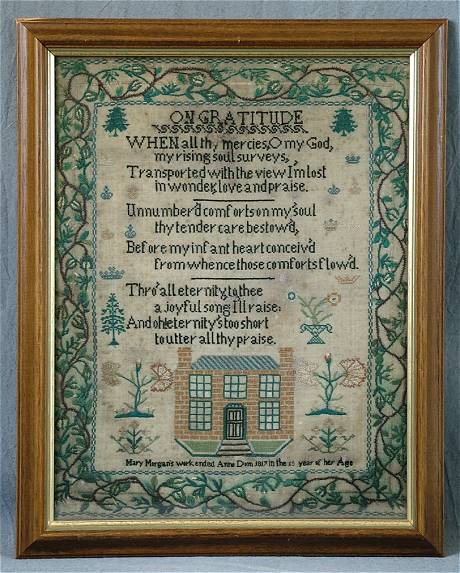 ON GRATITUDE
WHEN all thy mercies, O my God,
my rising soul surveys,
Transported with the view I'm lost
in wonder, love and praise.
Unnumber'd comforts on my soul
thy tender care bestow'd,
Before my infant heart conceiv'd
from whence those comforts flow'd.
Thro' all eternity to thee
a joyful song I'll raise:
And oh! eternity's too short
to utter all thy praise.
Mary Morgan's work ended Anno Dom 1817 in the year of her Age